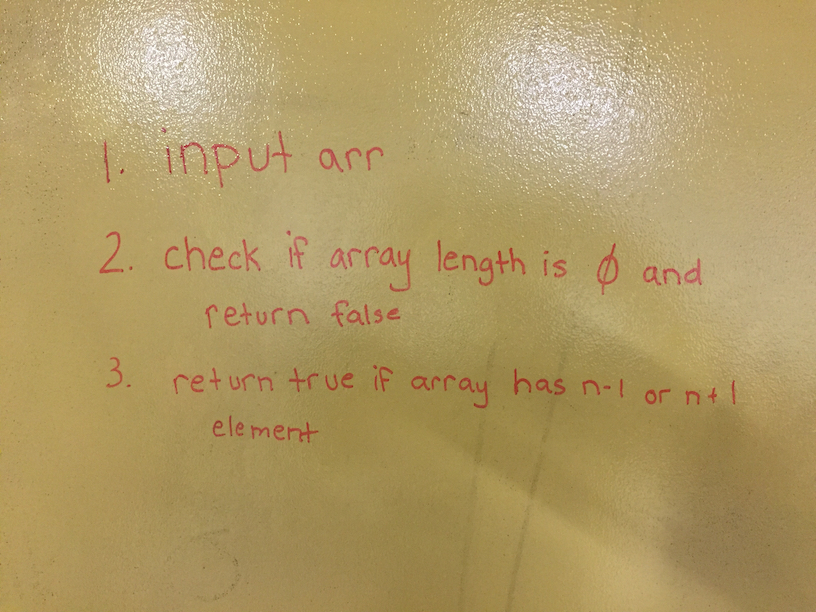 1. input arr
2. check if array length is ∅ and
return false
3. return true if array has n-1 or n+1
element